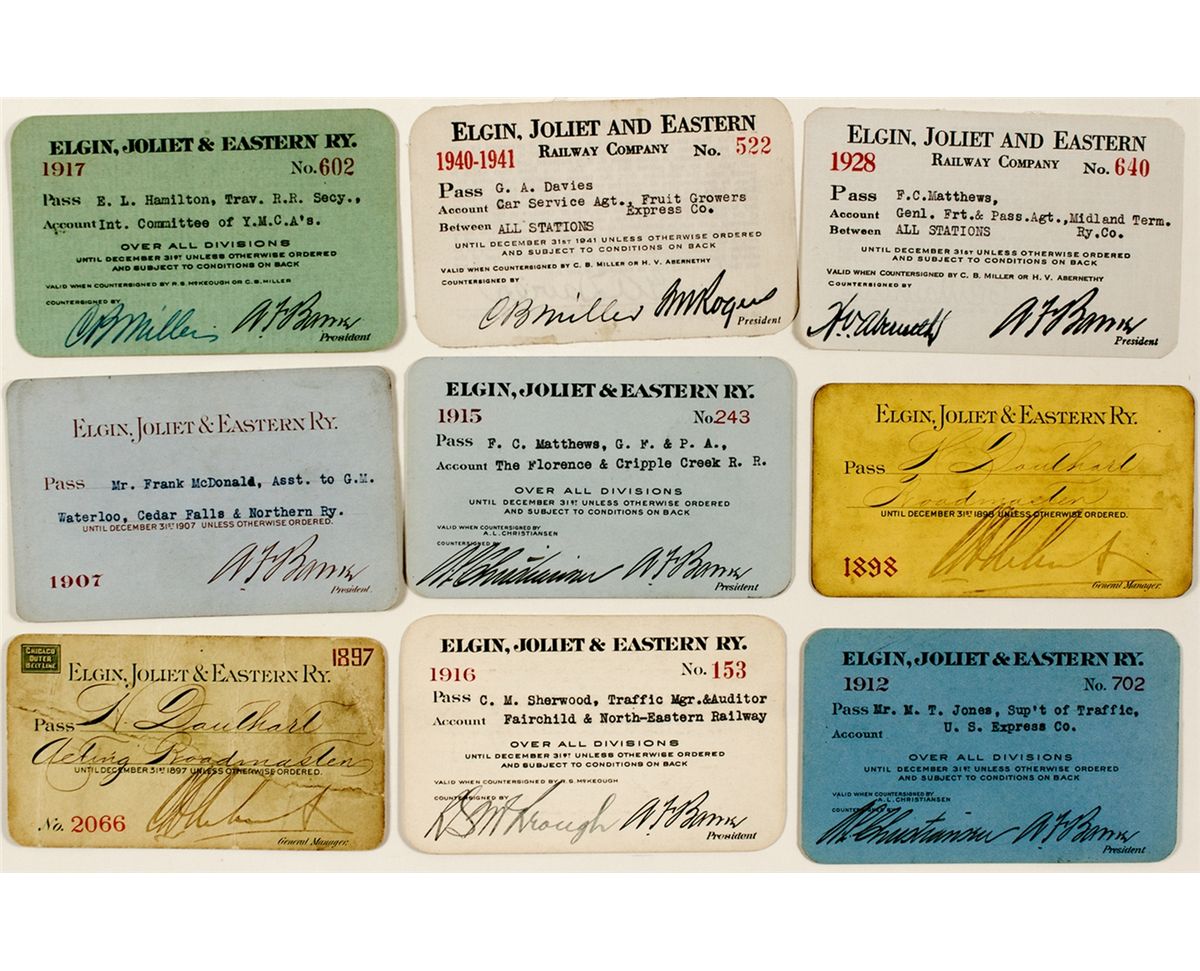 ELGIN, JOLIET & EASTERN RY.
1917 No. 602
Pass E. L. Hamilton, Trav. R.R. Secy.,
Account Int. Committee of Y.M.C.A's.
OVER ALL DIVISIONS
UNTIL DECEMBER 31ST UNLESS OTHERWISE ORDERED
AND SUBJECT TO CONDITIONS ON BACK
VALID WHEN COUNTERSIGNED BY R.S. McKEOUGH OR C.B. MILLER
COUNTERSIGNED BY
CB Miller A F Banks
President
ELGIN, JOLIET AND EASTERN
1940-1941 RAILWAY COMPANY No. 522
Pass G. A. Davies
Account Car Service Agt., Fruit Growers
Express Co.
Between ALL STATIONS
UNTIL DECEMBER 31ST 1941 UNLESS OTHERWISE ORDERED
AND SUBJECT TO CONDITIONS ON BACK
VALID WHEN COUNTERSIGNED BY C. B. MILLER OR H. V. ABERNETHY
COUNTERSIGNED BY
CB Miller Rogers
President
ELGIN, JOLIET AND EASTERN
1928 RAILWAY COMPANY No. 640
Pass F.C.Matthews,
Account Genl. Frt.& Pass.Agt.,Midland Term.
Between ALL STATIONS Ry.Co.
UNTIL DECEMBER 31ST UNLESS OTHERWISE ORDERED
AND SUBJECT TO CONDITIONS ON BACK
VALID WHEN COUNTERSIGNED BY C. B. MILLER OR H. V. ABERNETHY
COUNTERSIGNED BY
H.V. Abernethy A F Banks
President
ELGIN, JOLIET & EASTERN RY.
Pass Mr. Frank McDonald, Asst. to G.M.
Waterloo, Cedar Falls & Northern Ry.
UNTIL DECEMBER 31ST 1907 UNLESS OTHERWISE ORDERED.
A F Banks
1907 President.
ELGIN, JOLIET & EASTERN RY.
1915 No. 243
Pass F. C. Matthews, G. F. & P. A.,
Account The Florence & Cripple Creek R. R.
OVER ALL DIVISIONS
UNTIL DECEMBER 31ST UNLESS OTHERWISE ORDERED
AND SUBJECT TO CONDITIONS ON BACK
VALID WHEN COUNTERSIGNED BY
A.L. CHRISTIANSEN
COUNTERSIGNED BY
A L Christiansen A F Banks
President
ELGIN, JOLIET & EASTERN RY.
Pass H. Douthart
Roadmaster
UNTIL DECEMBER 31ST 1898 UNLESS OTHERWISE ORDERED.
1898
General Manager.
CHICAGO
OUTER
BELT LINE
1897
ELGIN, JOLIET & EASTERN RY.
Pass H. Douthart
Acting Roadmaster
UNTIL DECEMBER 31ST 1897 UNLESS OTHERWISE ORDERED.
No. 2066
General Manager.
ELGIN, JOLIET & EASTERN RY.
1916 No. 153
Pass C. M. Sherwood, Traffic Mgr.&Auditor
Account Fairchild & North-Eastern Railway
OVER ALL DIVISIONS
UNTIL DECEMBER 31ST UNLESS OTHERWISE ORDERED
AND SUBJECT TO CONDITIONS ON BACK
VALID WHEN COUNTERSIGNED BY R.S. McKEOUGH
COUNTERSIGNED BY
R S McKeough A F Banks
President
ELGIN, JOLIET & EASTERN RY.
1912 No. 702
Pass Mr. M. T. Jones, Sup't of Traffic,
Account U. S. Express Co.
OVER ALL DIVISIONS
UNTIL DECEMBER 31ST UNLESS OTHERWISE ORDERED
AND SUBJECT TO CONDITIONS ON BACK
VALID WHEN COUNTERSIGNED BY
A.L. CHRISTIANSEN
COUNTERSIGNED BY
A L Christiansen A F Banks
President